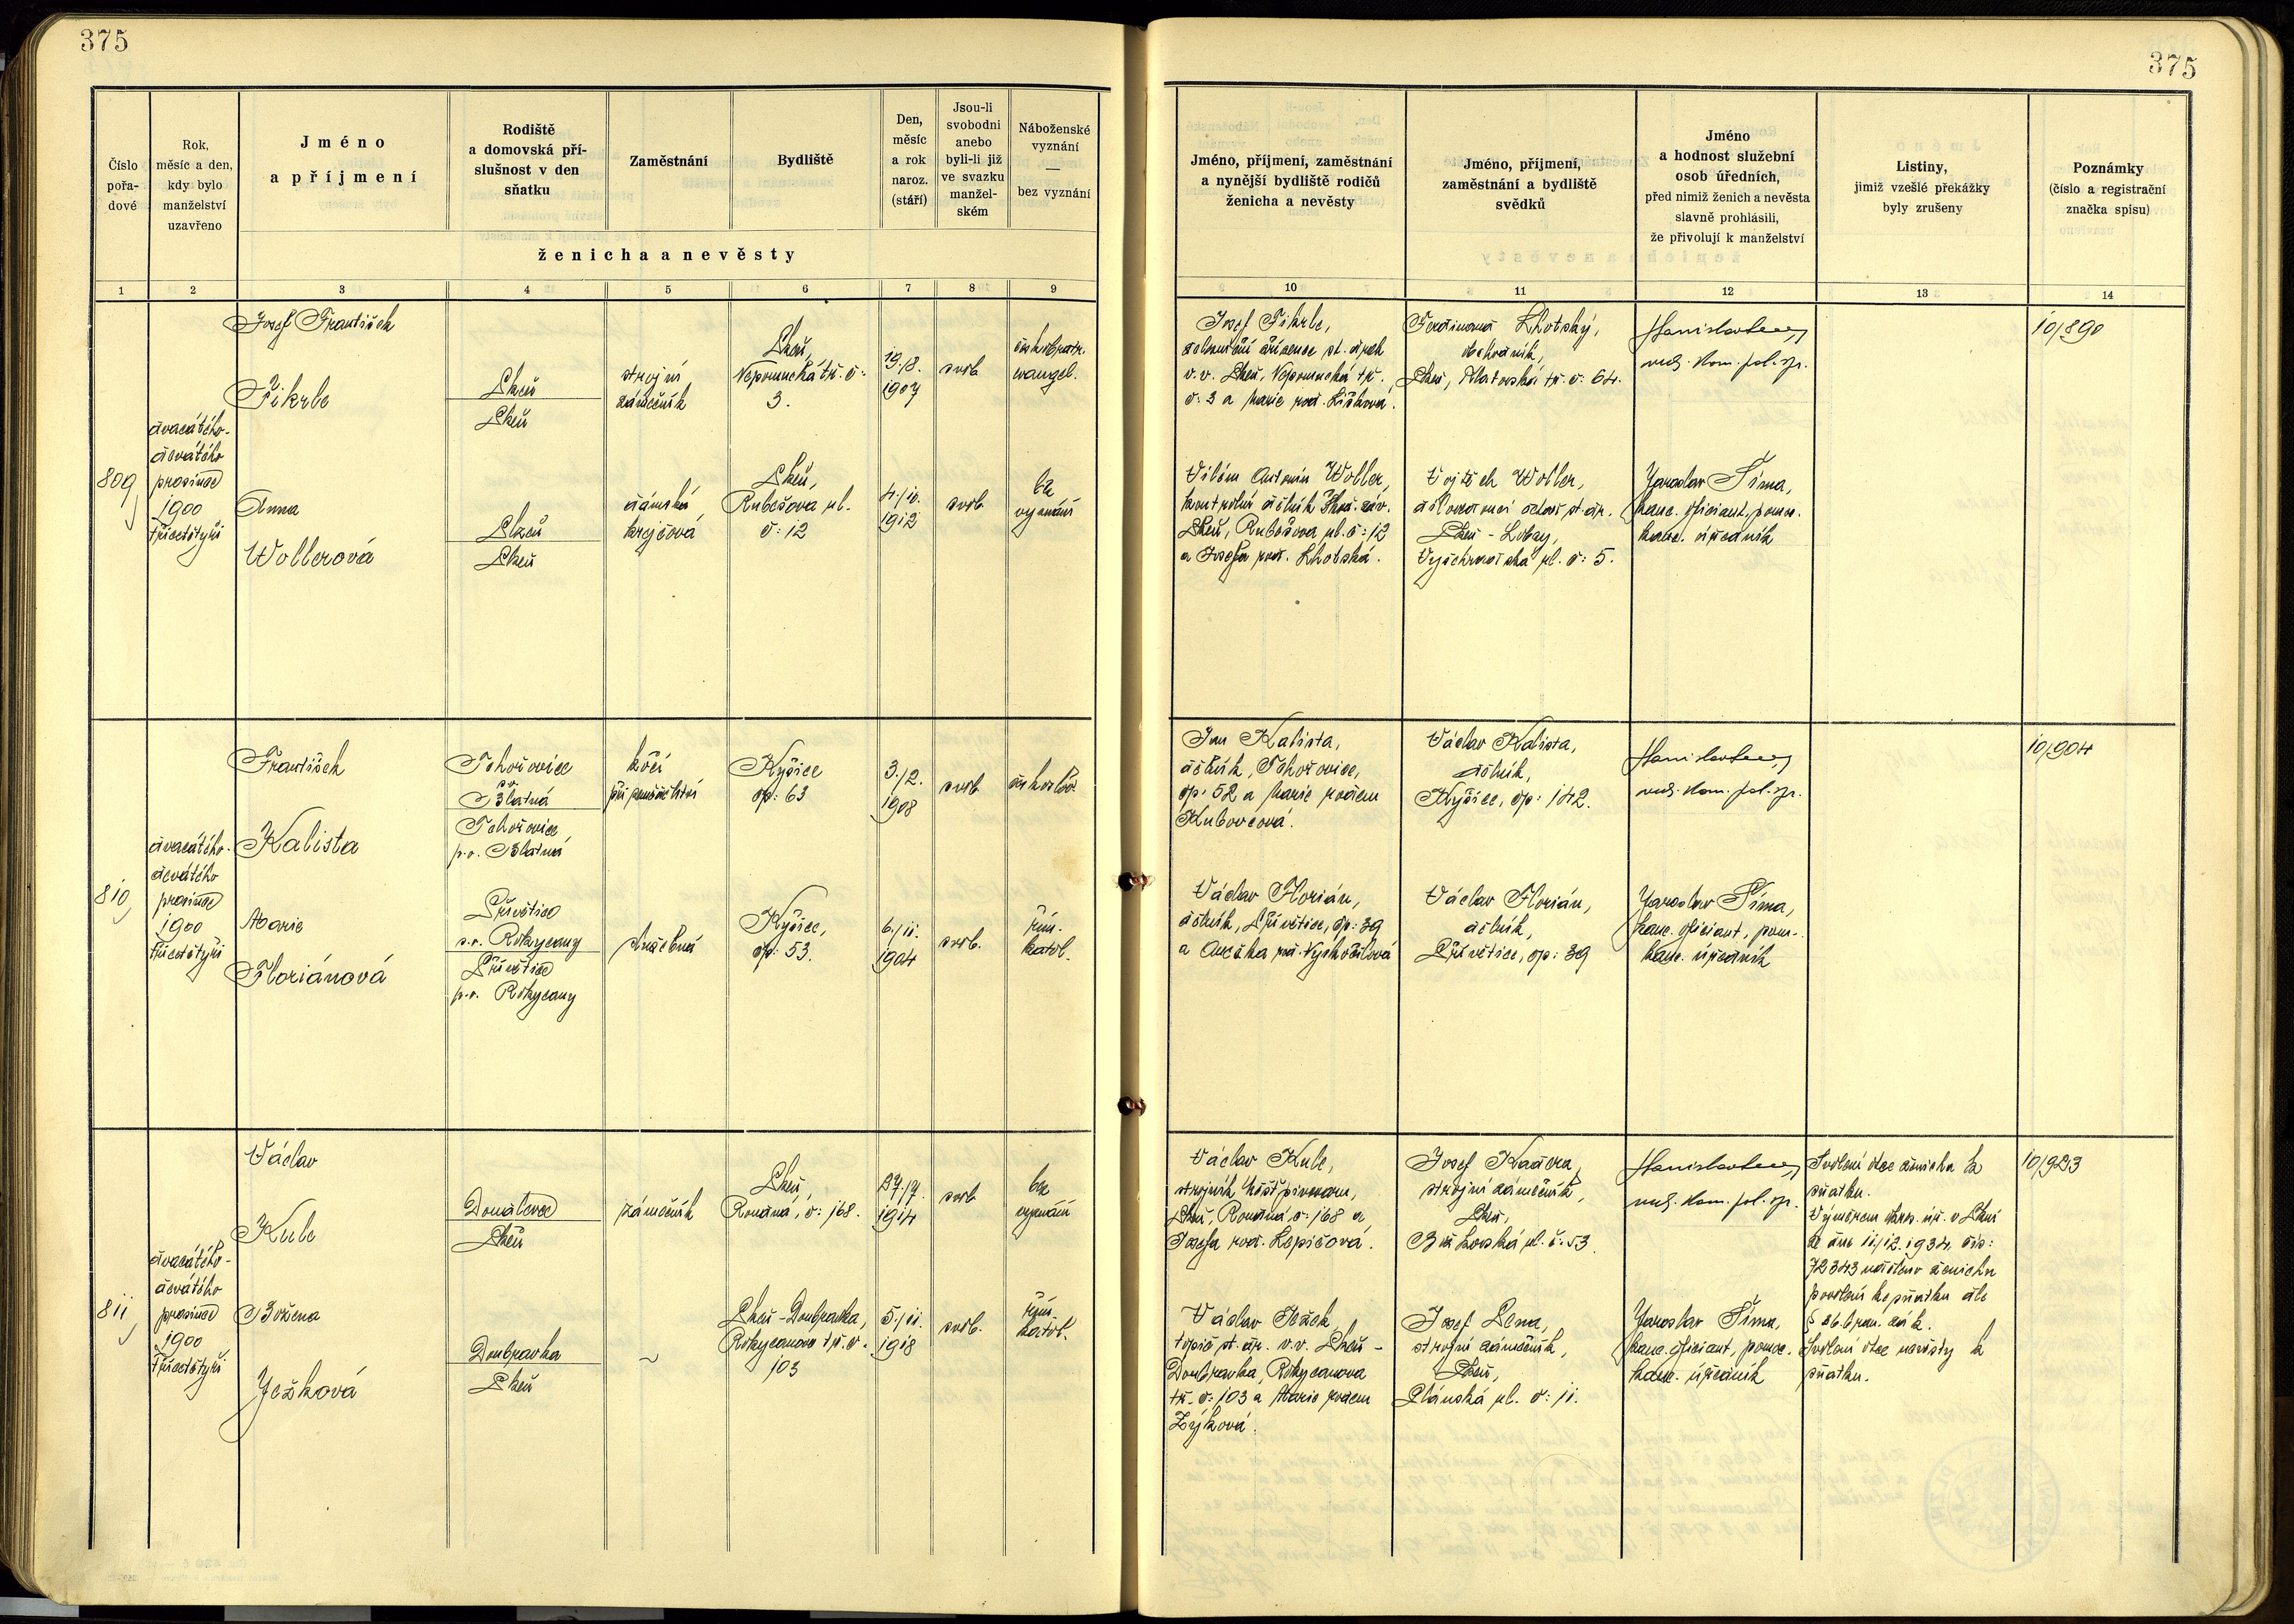 375
375
Číslo
pořa-
dové
Rok,
měsíc a den,
kdy bylo
manželství
uzavřeno
Jméno
a příjmení
Rodiště
a domovská pří-
slušnost v den
sňatku
Zaměstnání
Bydliště
Den,
měsíc
a rok
naroz.
(stáří)
Jsou-li
svobodni
anebo
byli-li již
ve svazku
manžel-
ském
Náboženské
vyznání
—
bez vyznání
ženicha a nevěsty
Jméno, příjmení, zaměstnání
a nynější bydliště rodičů
ženicha a nevěsty
Jméno, příjmení,
zaměstnání a bydliště
svědků
Jméno
a hodnost služební
osob úředních,
před nimiž ženich a nevěsta
slavně prohlásili,
že přivolují k manželství
Listiny,
jimiž vzešlé překážky
byly zrušeny
Poznámky
(číslo a registrační
značka spisu)
1 2 3 4 5 6 7 8 9
10 11 12 13 14
809
dvacátého-
devátého
prosince
1900
třicetčtyři
Josef František
Fikrle
Plzeň
Plzeň
strojní
zámečník
Plzeň,
Nepomucká tř. č:
3.
19./8.
1907
svob.
českobratr.
evangel.
Anna
Wollerová
Plzeň
Plzeň
dámská
krejčová
Plzeň,
Rubešova ul.
č: 12
4./10.
1912
svob.
bez
vyznání
Josef Fikrle,
v.v. Plzeň, Nepomucká tř.
č: 3 a Marie roz. Lišková.
Ferdinand Lhotský,
obchodník,
Plzeň, Klatovská tř. č: 64.
rud. kom. pol. spr.
10/890
Vilém Antonín Woller,
kontrolní dělník Škod. záv.
Plzeň, Rubešova ul. č: 12
a Josefa roz. Lhotská.
Vojtěch Woller,
Plzeň - Lobzy,
Vyšehradská ul. č: 5.
Jaroslav Šíma,
kanc. oficiant, pomoc.
kanc. úředník
810
dvacátého-
devátého
prosince
1900
třicetčtyři
František
Kalista
Tchořovice
p.o.
Blatná
Tchořovice,
p.o. Blatná
kočí
při zemědělství
Kyšice
čp: 63
3./2.
1908
svob.
českoslov.
Marie
Floriánová
Přívětice
p.o. Rokycany
Přívětice
p.o. Rokycany
služebná
Kyšice,
čp: 53.
6./11.
1904
svob.
řím.
katol.
Jan Kalista,
dělník, Tchořovice,
čp: 52 a Marie rozem
Kubovcová.
Václav Kalista,
dělník,
Kyšice, čp: 142.
rud. kom. pol. spr.
10/904
Václav Florián,
dělník, Přívětice, čp: 39
a Anežka roz. Vyskočilová
Václav Florián,
dělník,
Přívětice, čp: 39
Jaroslav Šíma,
kanc. oficiant, pom.
kanc. úředník
811
dvacátého-
devátého
prosince
1900
třicetčtyři
Václav
Kule
Doudlevce
Plzeň
zámečník
Plzeň,
Roudná, č: 168.
27./7.
1914
svob.
bez
vyznání
Božena
Ježková
Doubravka
Plzeň
~
Plzeň-Doubravka,
Rokycanova tř. č.
103
5./11.
1918
svob.
řím.
katol.
Václav Kule,
strojník měšť. pivovaru,
Plzeň, Roudná, č: 168 a
Josefa roz. Lepičová.
Josef Kaděra,
strojní zámečník,
Plzeň,
ul. č. 53.
rud. kom. pol. spr.
Svolení otce ženicha ke
sňatku.
Výměrem okres. úř. v Plzni
ze dne 11./12. 1934, čís:
72343 uděleno ženichu
povolení ke sňatku dle
Svolení otce nevěsty k
sňatku.
10/923
Václav Ježek,
topič st. dr. v.v. Plzeň -
Doubravka, Rokycanova
tř. č: 103 a Marie rozem
Zýková.
Josef Lena,
strojní zámečník,
Plzeň,
Plánská ul. č: 11.
Jaroslav Šíma,
kanc. oficiant, pomoc.
kanc. úředník